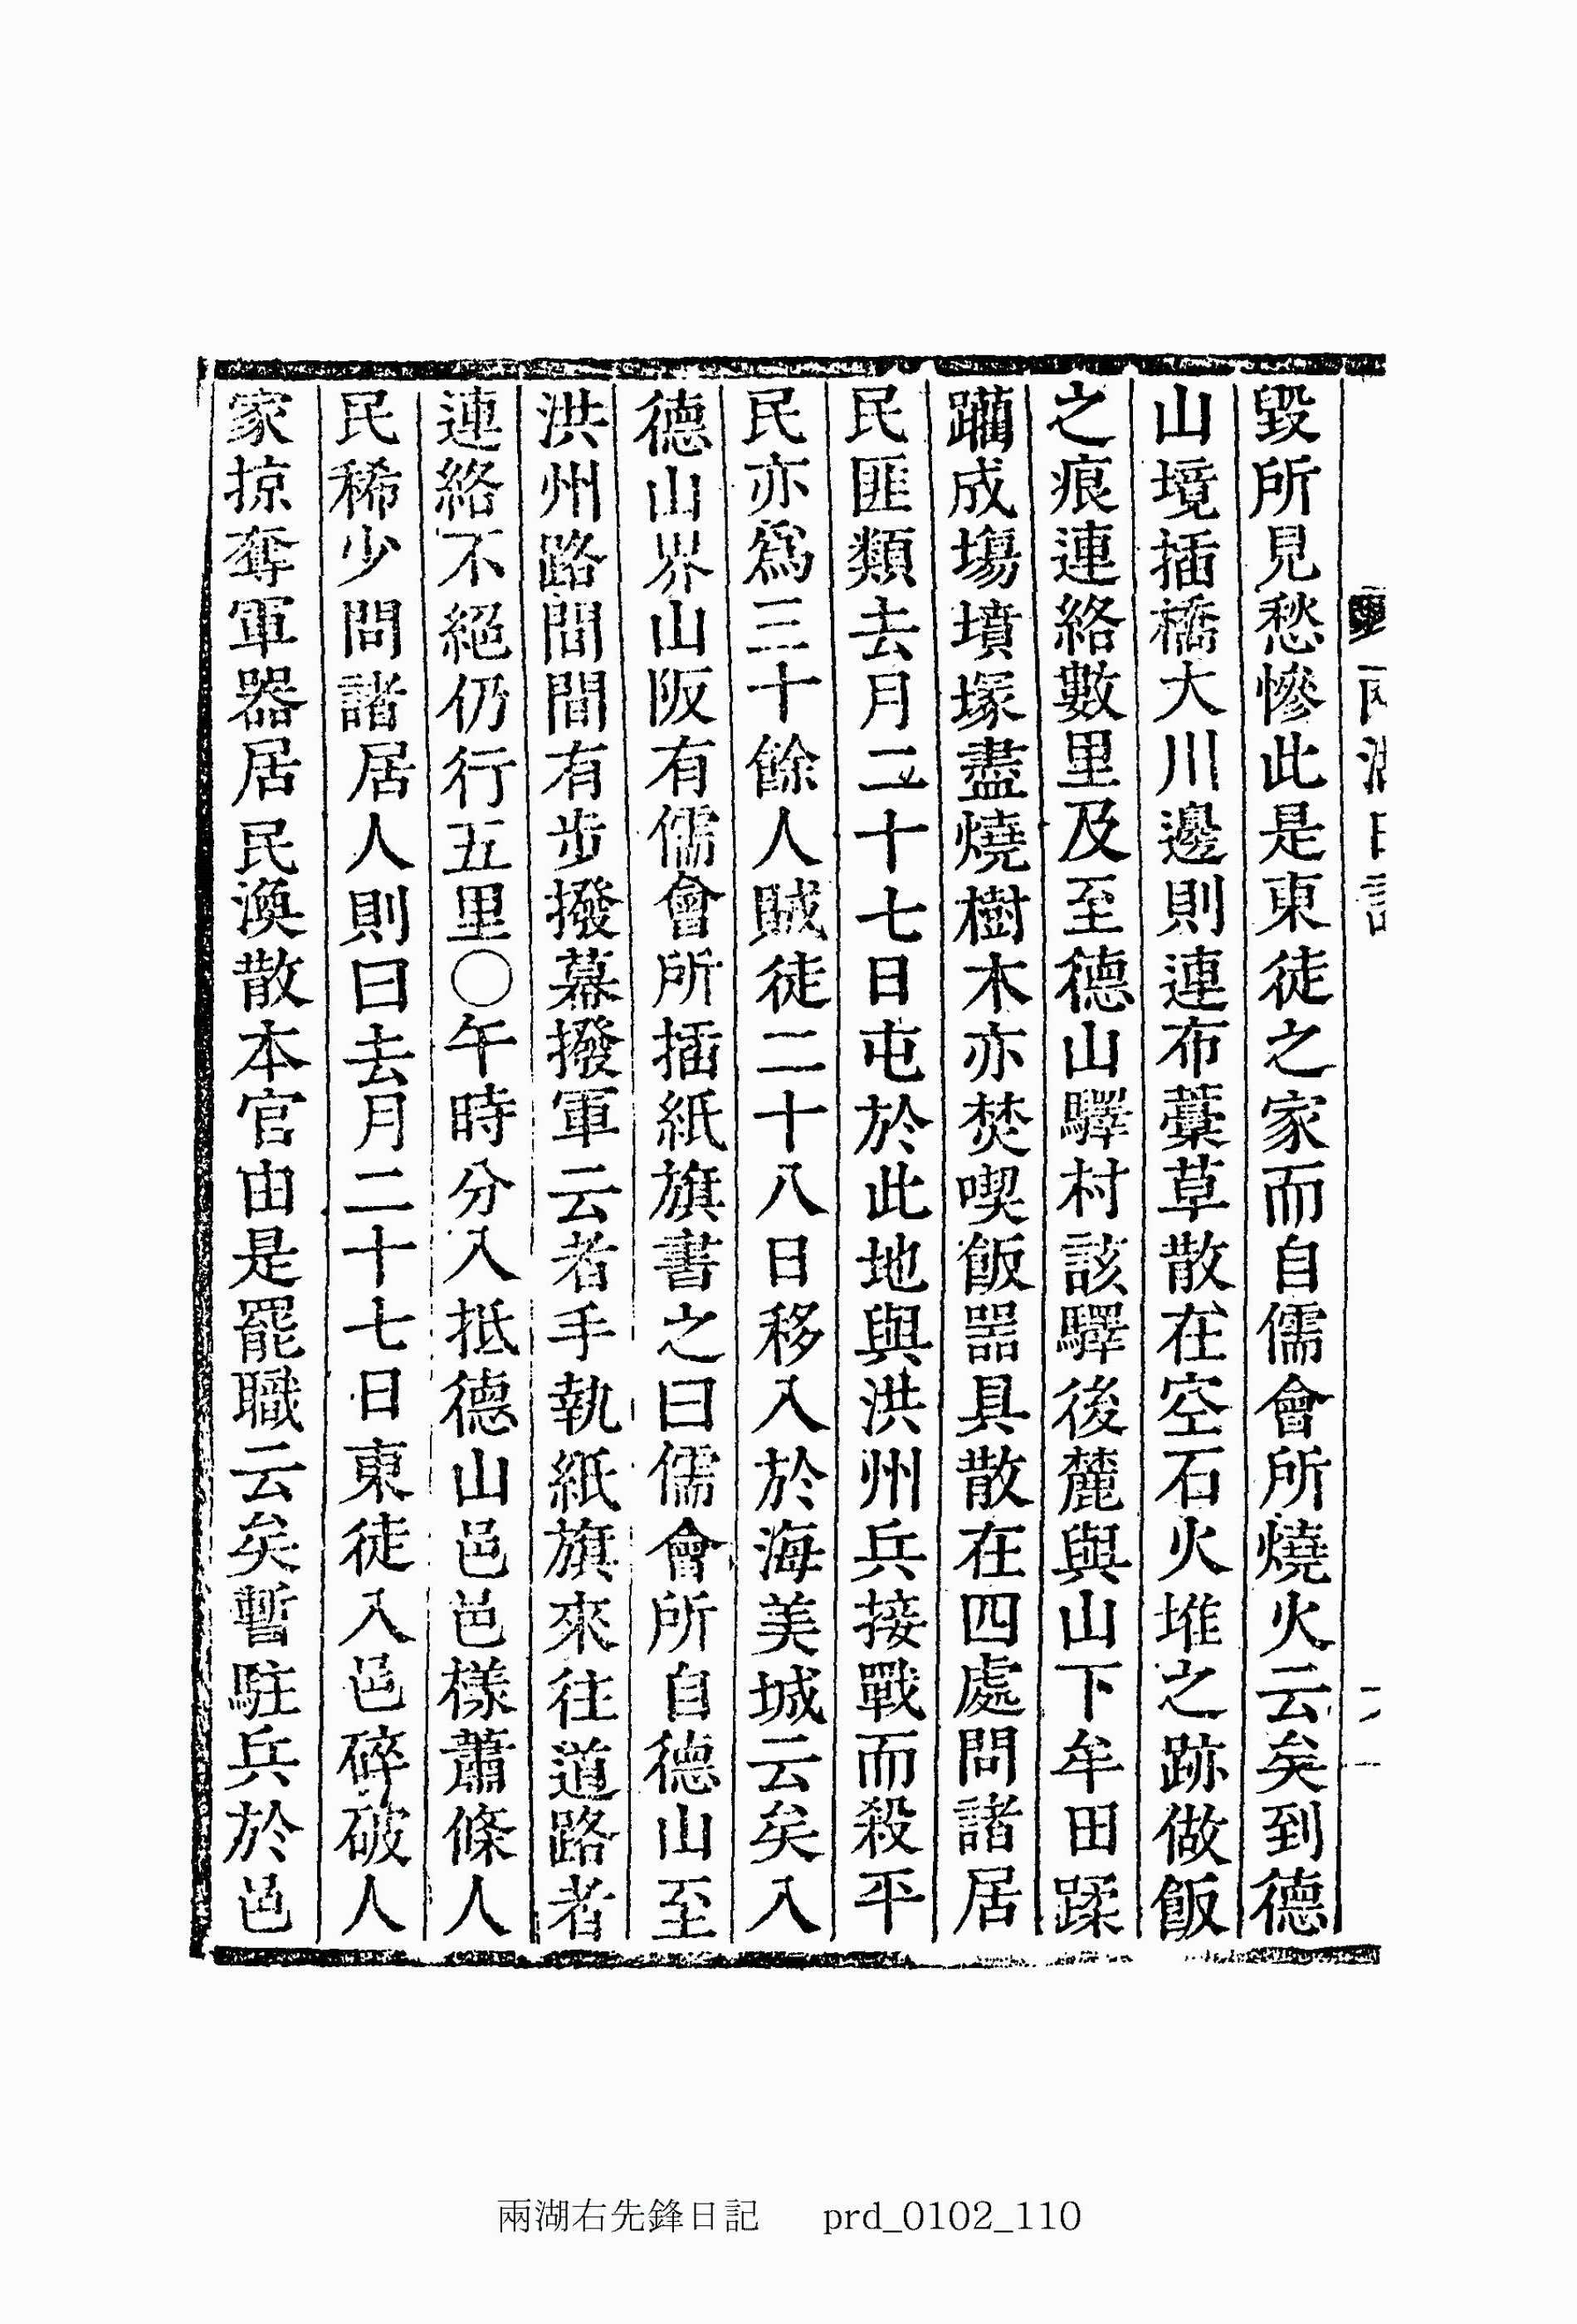 毀所見愁慘此是東徒之家而自儒會所燒火云矣到德
山境插橋大川邊則連布藁草散在空石火堆之跡做飯
之痕連絡數里及至德山驛村該驛後麓與山下牟田蹂
躪成塲墳塚盡燒樹木亦焚喫飯器具散在四處問諸居
民匪類去月二十七日屯於此地與洪州兵接戰而殺平
民亦爲三十餘人賊徒二十八日移入於海美城云矣入
德山界山阪有儒會所插紙旗書之曰儒會所自德山至
洪州路間間有步撥幕撥軍云者手執紙旗來往道路者
連絡不絕仍行五里〇午時分入抵德山邑邑樣蕭條人
民稀少問諸居人則曰去月二十七日東徒入邑碎破人
家掠奪軍器居民渙散本官由是罷職云矣暫駐兵於邑
兩湖右先鋒日記 prd_0102_110